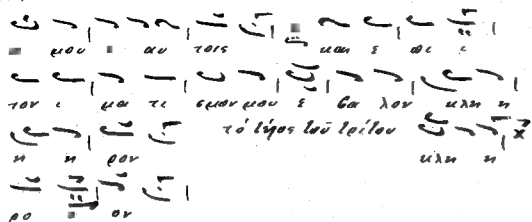 μου αυ τοις και ε πι ι
τον ι μα τι σμον μου ε βα λον κλη η
η η ρον τὸ τέλος τοῦ τρίτου κλη η
ρο ον